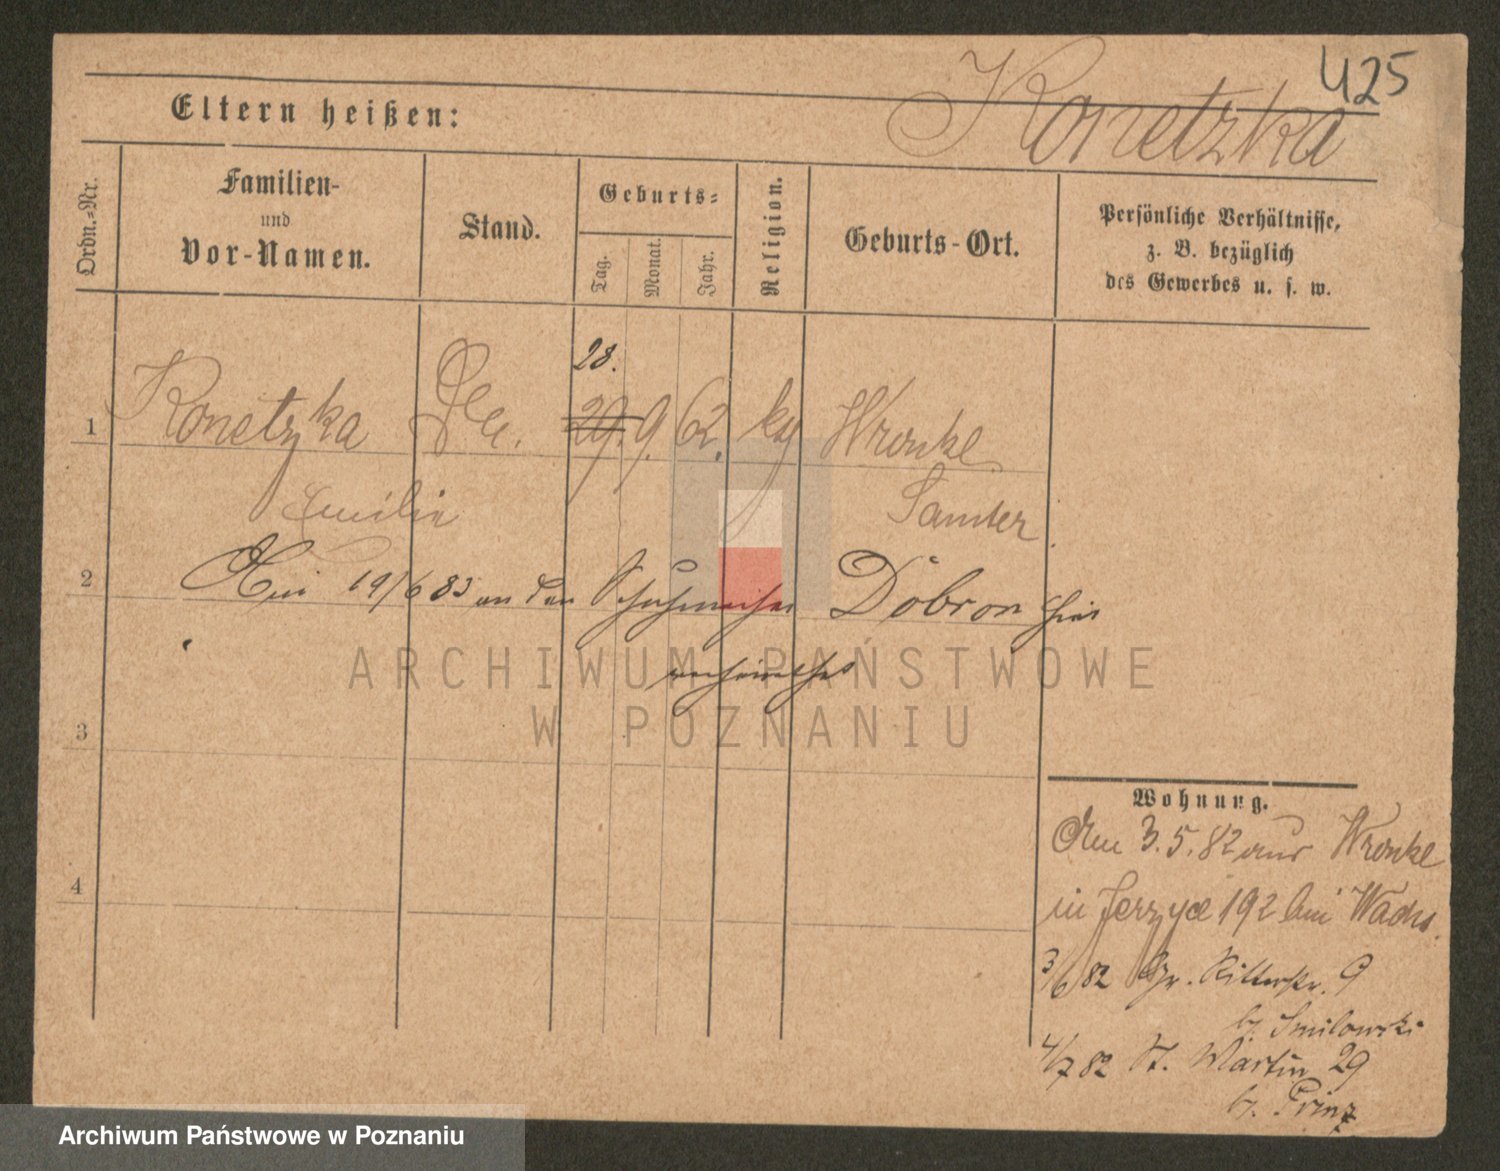 425
Konetzka
Eltern heißen:
Ordn.=Nr.
Familien-
und
Vor-Namen.
Stand.
Geburts=
Tag.
Monat.
Jahr.
Religion.
Geburts-Ort.
Persönliche Verhältnisse,
z. B. bezüglich
des Gewerbes u. s. w.
28.
1 Konetzka 29. 9. 62. kg Wronke
Emilie Samter
2 Am 19/6 83 an den Schuhmacher Dobron hier
verheirathet
ARCHIWUM PAŃSTWOWE
W POZNANIU
3
4
Wohnung.
Am 3.5.82 aus Wronke
in Jerzyce 192 bei Wachs.
3/6 82 Gr. Ritterstr. 9
b. Smilowski
4/7 82 St. Martin 29
b. Prinz
Archiwum Państwowe w Poznaniu